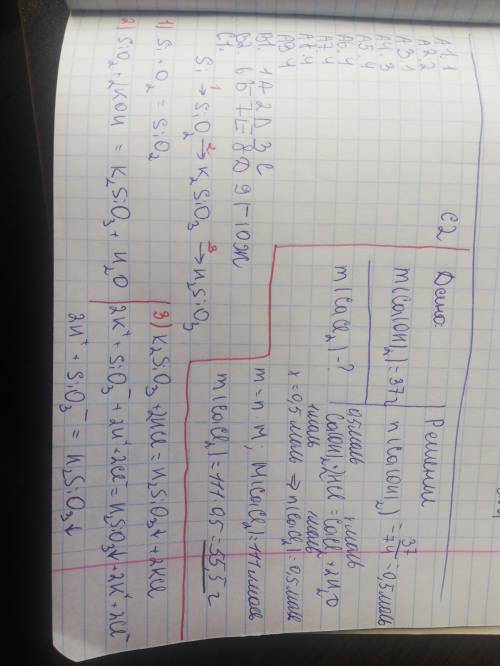 А1. 1
А2. 2
А3. 1
А4. 3
А5. 4
А6. 4
А7. 4
А8. 4
А9. 4
В1. 1А 2Д 3Е
В2. 6Б 7Е 8Д 9Г 10Ж
С1.
Si →¹ SiO₂ →² K₂SiO₃ →³ H₂SiO₃
1) Si + O₂ = SiO₂
2) SiO₂ + 2KOH = K₂SiO₃ + H₂O
3) K₂SiO₃ + 2HCl = H₂SiO₃↓ + 2KCl
2K⁺ + SiO₃⁻ + 2H⁺ + 2Cl⁻ = H₂SiO₃↓ + 2K⁺ + 2Cl⁻
2H⁺ + SiO₃⁻ = H₂SiO₃↓
С2
Дано:
m(Ca(OH)₂) = 37г
m(CaCl₂) - ?
Решение
n(Ca(OH)₂) = 37/74 = 0,5 моль
0,5 моль x моль
Ca(OH)₂ + 2HCl = CaCl₂ + 2H₂O
1 моль 1 моль
x = 0,5 моль ⇒ n(CaCl₂) = 0,5 моль
m = n · M; M(CaCl₂) = 111 г/моль
m(CaCl₂) = 111 · 0,5 = 55,5 г